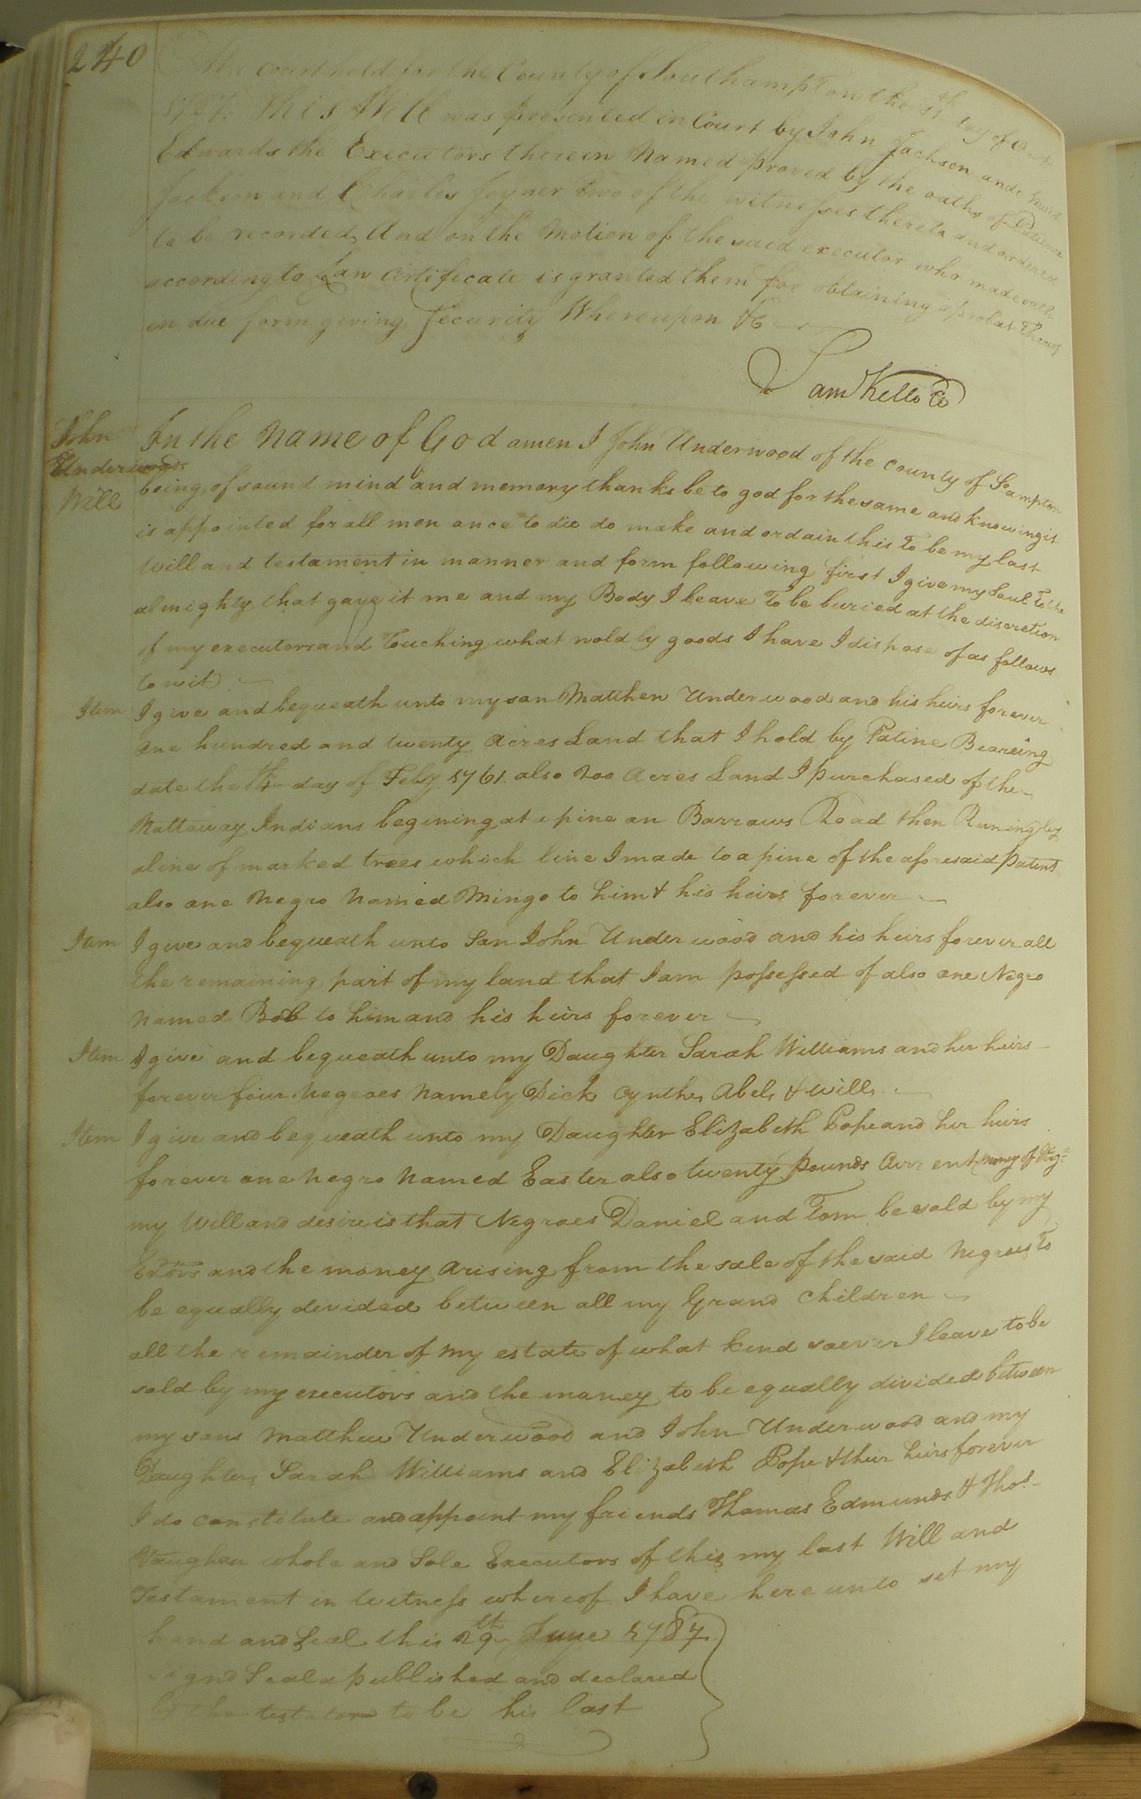 240
At a Court held for the County of Southampton the 11th day of Oct
This Will was presented in Court by John Jackson and
Edwards the Executors therein Named proved by the oaths of
Jackson and Charles Joyner Two of the witnesses thereto and ordered
to be recorded, And on the Motion of the said executor who made oath
according to Law Certificate is granted them for obtaining a probat thereof
in due form giving Security Whereupon &c
Sam Kello Cl
John
Underwoods
Will
In the Name of God amen I John Underwood of the county of S ampton
being of sound mind and memory thanks be to god for the same and knowing it
is appointed for all men once to die do make and ordain this To be my last
Will and testament in manner and form following first I give my Soul To the
almighty that gave it me and my Body I leave To be buried at the discretion
of my executors and Touching what woldly goods I have I dispose of as follows
to wit
Item I give and bequeath unto my son Matthew Underwood and his heirs forever
one hundred and twenty Acres Land that I hold by Patine Beareing
date the day of Feby 1761 also 200 Acres Land I purchased of the
Nattaway Indians begining at a pine on Barrows Road then Runing by
a line of marked trees which line I made to a pine of the aforesaid Patent
also one Negro Named Mingo to him & his heirs forever
Item I give and bequeath unto Son John Underwood and his heirs forever all
the remaining part of my land that I am possessed of also one Negro
Named Bob to him and his heirs forever
Item I give and bequeath unto my Daughter Sarah Williams and her heirs
forever four Negroes Namely Dick Cynthe, Abel, & Will
Item I give and bequeath unto my Daughter Elizabeth Pope and her heirs
forever one Negro Named Easter also twenty pounds Current money of Virga
my Will and desire is that Negroes Daniel and Tom be sold by my
Exors and the money arising from the sale of the said Negroes To
be equally divided between all my Grand Children
all the remainder of my estate of what kind soever I leave to be
sold by my executors and the money to be equally divided between
my sons Matthew Underwood and John Underwood and my
Daughters Sarah Williams and Elizabeth Pope & their heirs forever
I do constitute and appoint my friends Thomas Edmunds & Thos.
Vaughan whole and Sole Executors of this my last Will and
Testament in Witness whereof I have here unto set my
hand and Seal this 29th June 1787
Signd Seald published and declared
by the testator to be his last